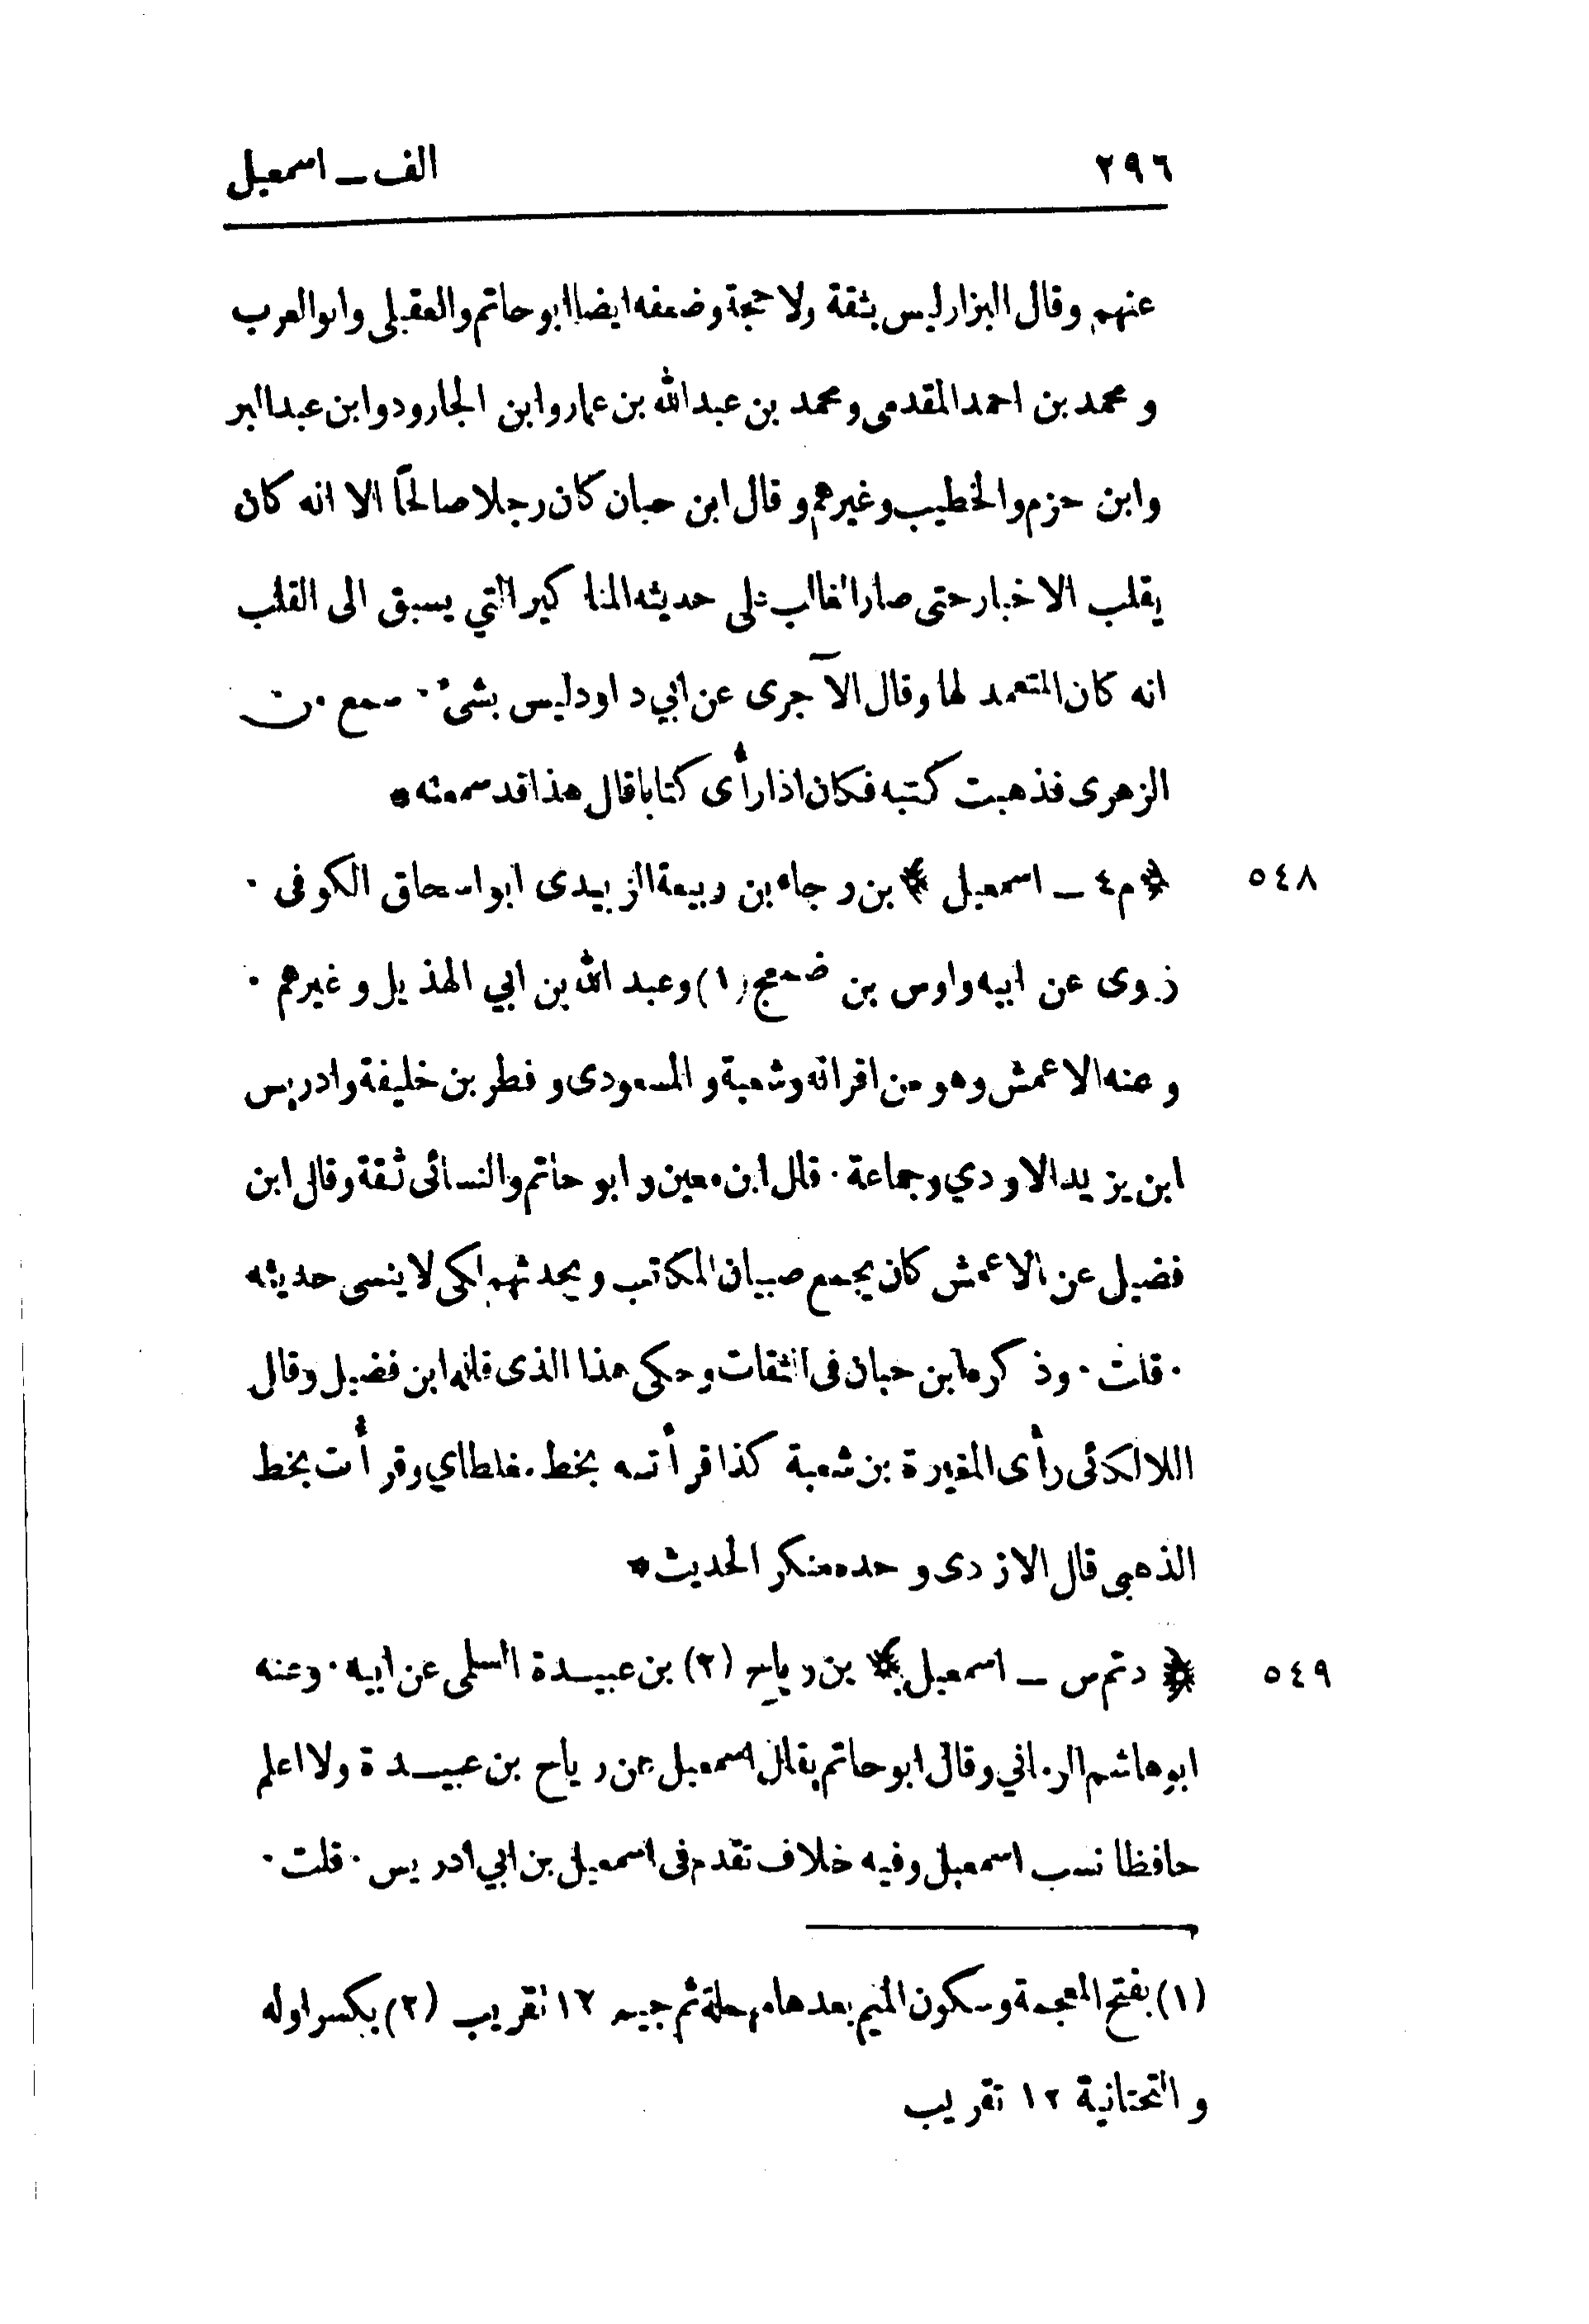 ٢٩٦ الف ـ اسمعيل
عنهم وقال البزار ليس بثقة ولا حجة وضعفه ايضا ابو حاتم والعقيلى وابو العرب
و محمد بن احمد المقدمى و محمد بن عبد الله بن عمار وابن الجارود وابن عبد البر
وابن حزم والخطيب وغيرهم و قال ابن حبان كان رجلا صالحًا الا انه كان
يقلب الاخبار حتى صار الغالب على حديثه المناكير التي يسبق الى القلب
انه كان المتعمد لها وقال الآجرى عن ابي داود ليس بشئ ٠ سمع من
الزهرى فذهبت كتبه فكان اذا رأى كتابا قال هذا قد سمعته *
٥٤٨ ﴿ م٤ ـ اسمعيل ﴾ بن رجاء بن ربيعة الزبيدى ابو اسحاق الكوفى ٠
روى عن ابيه واوس بن ضمعج (١) وعبد الله بن ابي الهذيل وغيرهم ٠
و عنه الاعمش وهو من اقرانه وشعبة و المسعودى و فطر بن خليفة وادريس
ابن يزيد الاودي وجماعة ٠ قال ابن معين و ابو حاتم والنسائى ثقة وقال ابن
فضيل عن الاعمش كان يجمع صبيان المكاتب و يحدثهم لكى لا ينسى حديثه
٠ قلت ٠ وذكره ابن حبان فى الثقات وحكى هذا الذى قاله ابن فضيل وقال
اللالكائى رأى المغيرة بن شعبة كذا قرأته بخط مغلطاي وقرأت بخط
الذهبى قال الازدى وحده منكر الحديث *
٥٤٩ ﴿ د تم س ـ اسمعيل ﴾ بن رياح (٢) بن عبيدة السلمى عن ابيه ٠ وعنه
ابو هاشم الرماني وقال ابو حاتم يقال اسمعيل عن رياح بن عبيدة ولا اعلم
حافظا نسب اسمعيل وفيه خلاف تقدم فى اسمعيل بن ابي ادريس ٠ قلت ٠
(١) بفتح المعجمة وسكون الميم بعدها مهملة ثم جيم ١٢ تقريب (٢) بكسر اوله
و التحتانية ١٢ تقريب